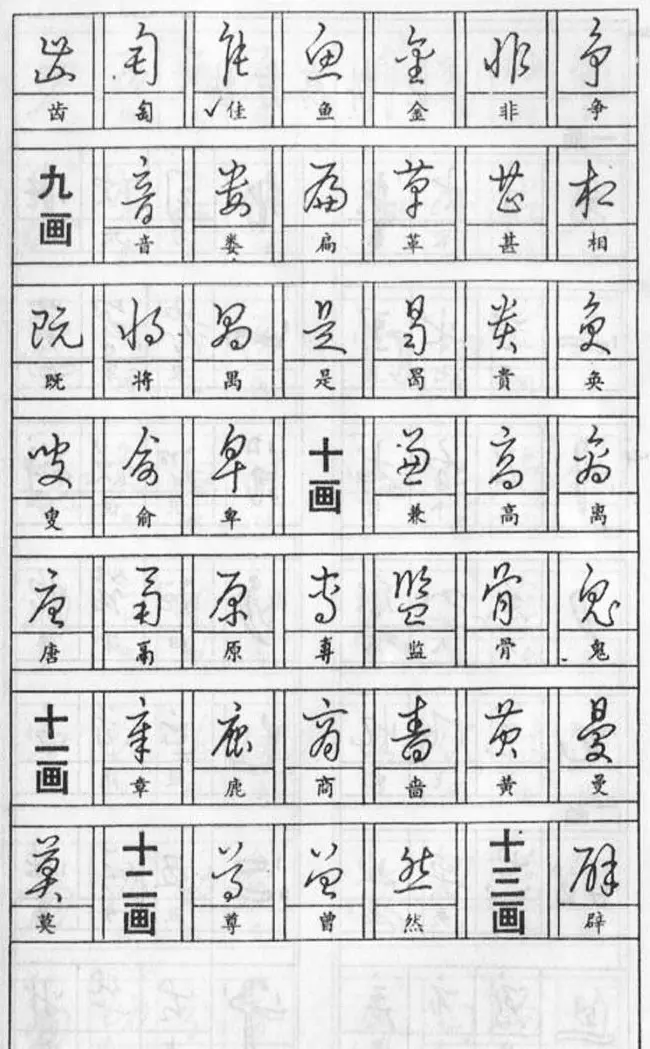 齿 匋 佳 鱼 金 非 争
九画 音 娄 扁 革 甚 相
既 将 禺 是 曷 貴 奂
叟 俞 卑 十画 兼 高 离
唐 鬲 原 監 骨 鬼
十一画 章 鹿 商 啬 黄 曼
莫 十二画 尊 曾 然 十三画 辟